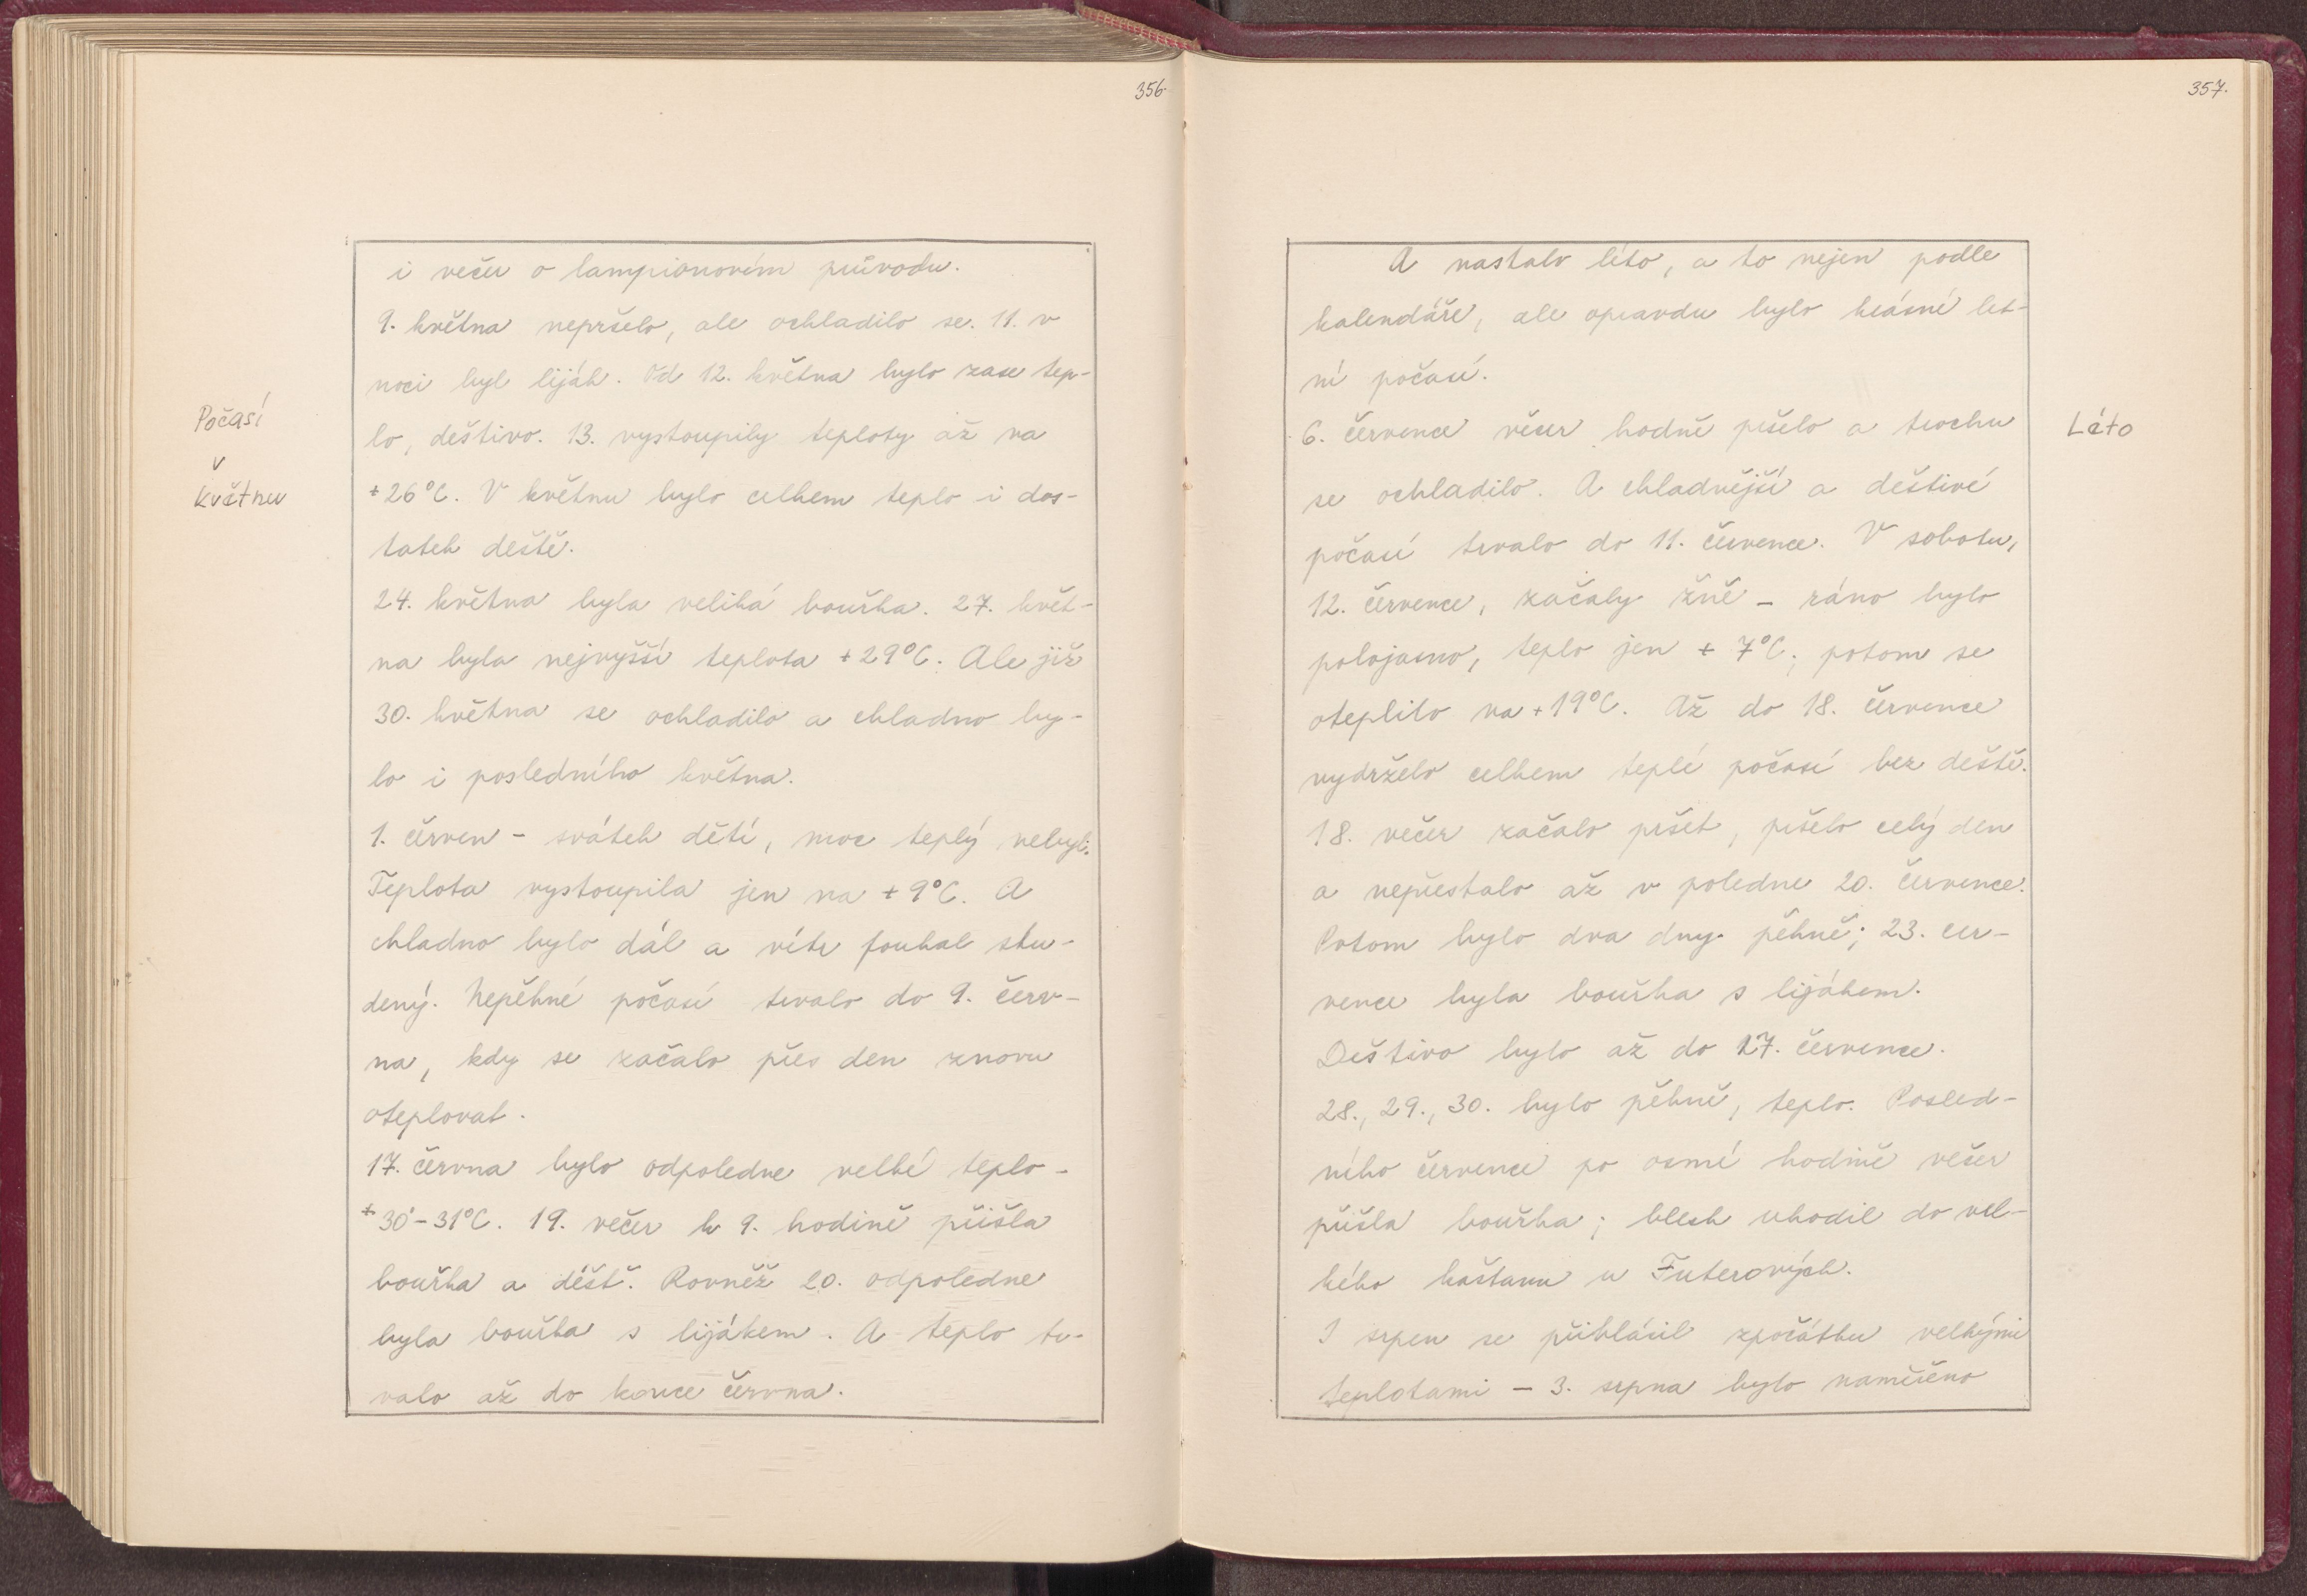 356.
i večer o lampionovém průvodu.
9. května nepršelo, ale ochladilo se. 11. v
noci byl liják. Od 12. května bylo zase tep-
lo, deštivo. 13. vystoupily teploty až na
+26°C. V květnu bylo celkem teplo i dos-
tatek deště.
24. května byla veliká bouřka. 27. květ-
na byla nejvyšší teplota +29°C. Ale již
30. května se ochladilo a chladno by-
lo i posledního května.
1. červen - svátek dětí, moc teplý nebyl.
Teplota vystoupila jen na +9°C. A
chladno bylo dál a vítr foukal stu-
dený. Nepěkné počasí trvalo do 9. červ-
na, kdy se začalo přes den znovu
oteplovat.
17. června bylo odpoledne velké teplo -
+30°-31°C. 19. večer k 9. hodině přišla
bouřka a déšť. Rovněž 20. odpoledne
byla bouřka s lijákem. A teplo tr-
valo až do konce června.
Počasí
v
květnu
357.
A nastalo léto, a to nejen podle
kalendáře, ale opravdu bylo krásné let-
ní počasí.
6. července večer hodně pršelo a trochu
se ochladilo. A chladnější a deštivé
počasí trvalo do 11. července. V sobotu,
12. července, začaly žně - ráno bylo
polojasno, teplo jen + 7°C; potom se
oteplilo na +19°C. Až do 18. července
vydrželo celkem teplé počasí bez deště.
18. večer začalo pršet, pršelo celý den
a nepřestalo až v poledne 20. července.
Potom bylo dva dny pěkně; 23. čer-
vence byla bouřka s lijákem.
Deštivo bylo až do 27. července.
28., 29., 30. bylo pěkně, teplo. Posled-
ního července po osmé hodině večer
přišla bouřka; blesk uhodil do vel-
kého kaštanu u Futerových.
I srpen se přihlásil zpočátku velkými
teplotami - 3. srpna bylo naměřeno
Léto